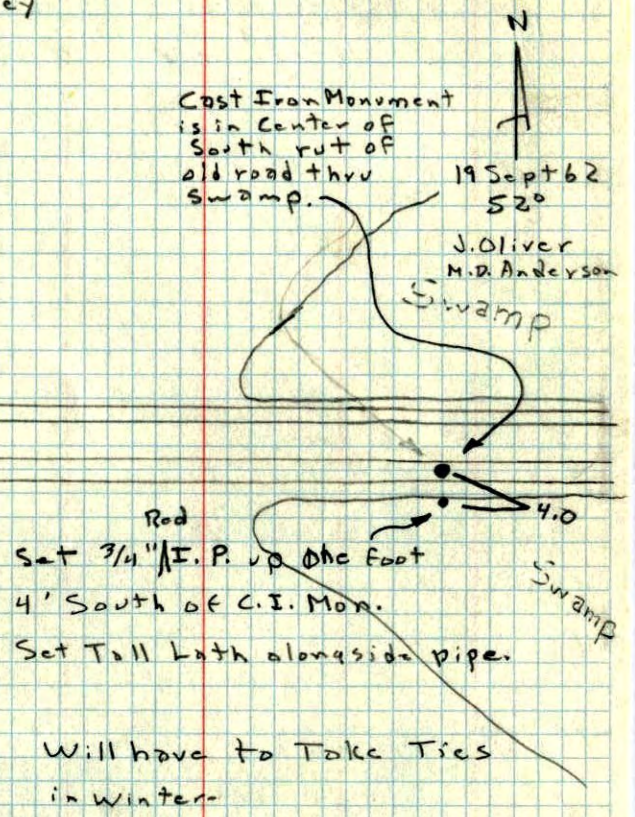 ey
N
Cast Iron Monument
is in Center of
South rut of
old road thru
swamp.
19 Sept 62
52°
J. Oliver
M.D. Anderson
Swamp
4.0
Rod
Set 3/4" I.P. up One Foot
4' South of C.I. Mon.
Set Tall Lath alongside pipe.
Swamp
Will have to Take Ties
in winter-